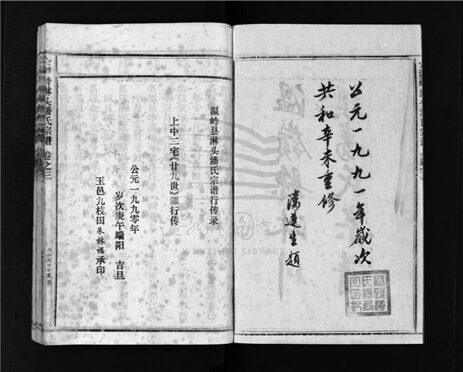 公元一九九一年歲次
共和辛未重修
潘道生題
温岭县淋头潘氏宗谱行传录
上中二宅(廿九世)源行传
公元一九九零年
岁次庚午端阳 吉旦
玉邑九枝田朱林福承印
岭淋头潘氏宗谱 卷之三
LIBRARY